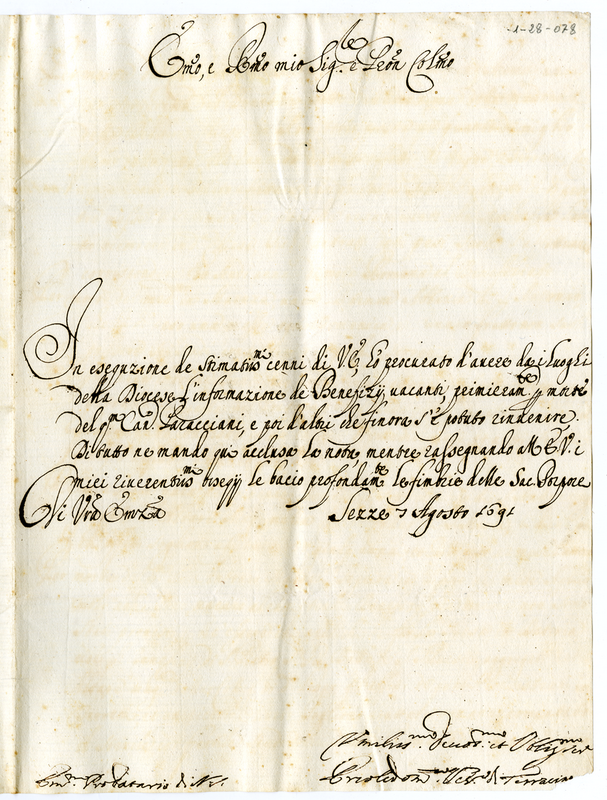 1-28-078
Emo, e Rmo mio Sigre e Pron Colmo
In esequzione de stimatissmi cenni di V.E. hò procurato d'avere da i luoghi
della Diocese l'informazione de Benefizij vacanti, primieramte p morte
del qm Can. Paracciani, e poi d'altri che finora s'è potuto rinvenire.
Di tutto ne mando qui acclusa la nota mentre rassegnando all'E.V. i
miei riverentissmi ossequij le bacio profondamte le fimbrie della Sac. Porpora
Di Vra Emza Sezze 7 Agosto 1691
Umilissmo Devotmo et Obligmo Serre
Vesco di Terracina
Em. Prodatario di N.S.